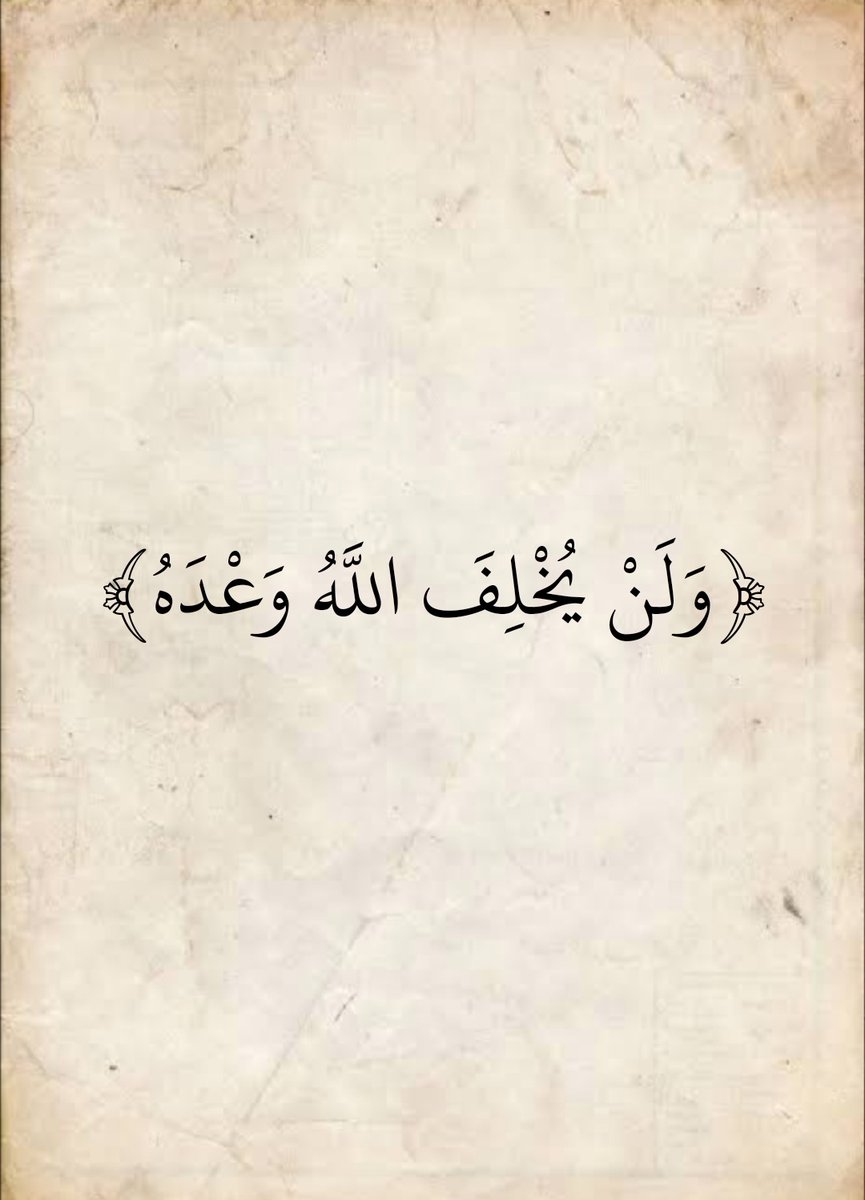 ﴿وَلَنْ يُخْلِفَ اللَّهُ وَعْدَهُ﴾